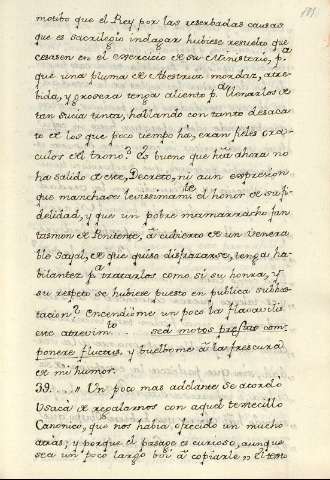 motibo que el Rey por las reserbadas causas
que es sacrilegio indagar hubiese resuelto que
cesasen en el exercicio de su Ministerio, p.a
que una pluma de Abestruz mordaz, atre-
bida, y grosera tenga aliento p.a llenarlos de
tan sucia tinta, hablando con tanto desaca-
to de los que poco tiempo há, eran fieles orá-
culos del trono? Es bueno que htã ahora no
ha salido de este, Decreto, ni aun expresion
que manchase levissimam.te el honor de su fi-
delidad, y que un pobre mamarracho fan-
tasmon de Penitente, à cubierto de un venera-
ble Sayal, de que quiso disfrazarse, tenga ha-
bilantez p.a tratarlos como si su honra, y
su respeto se hubiese puesto en publica subhas-
tacion? Encendióme un poco la
este atrevim.to sed motos prestat com-
ponere fluctus, y buelbome à la frescura
de mi humor.
39. „ Un poco mas adelante se acordó
de regalarnos con aquel temecillo
Canonico, que nos habia ofrecido un mucho
atrás; y porque el pasage es curioso, aunque
sea un poco largo boi à copiarle